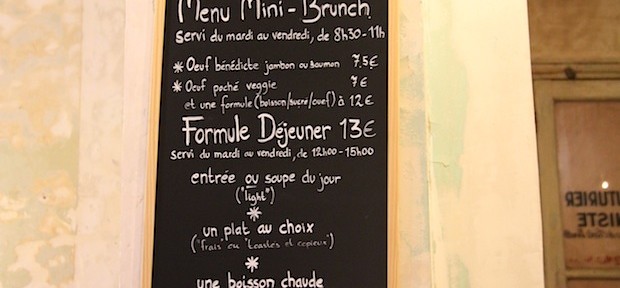 Menu Mini-Brunch
Servi du mardi au vendredi, de 8h30-11h
* Oeuf bénédicte jambon ou saumon 7.5€
* Oeuf poché veggie 7€
et une formule (boisson/sucré/oeuf) à 12€
Formule Déjeuner 13€
Servi du mardi au vendredi, de 12h00-15h00
entrée ou soupe du jour
("light")
*
un plat au choix
("frais" ou "toastés et copieux")
*
une boisson chaude